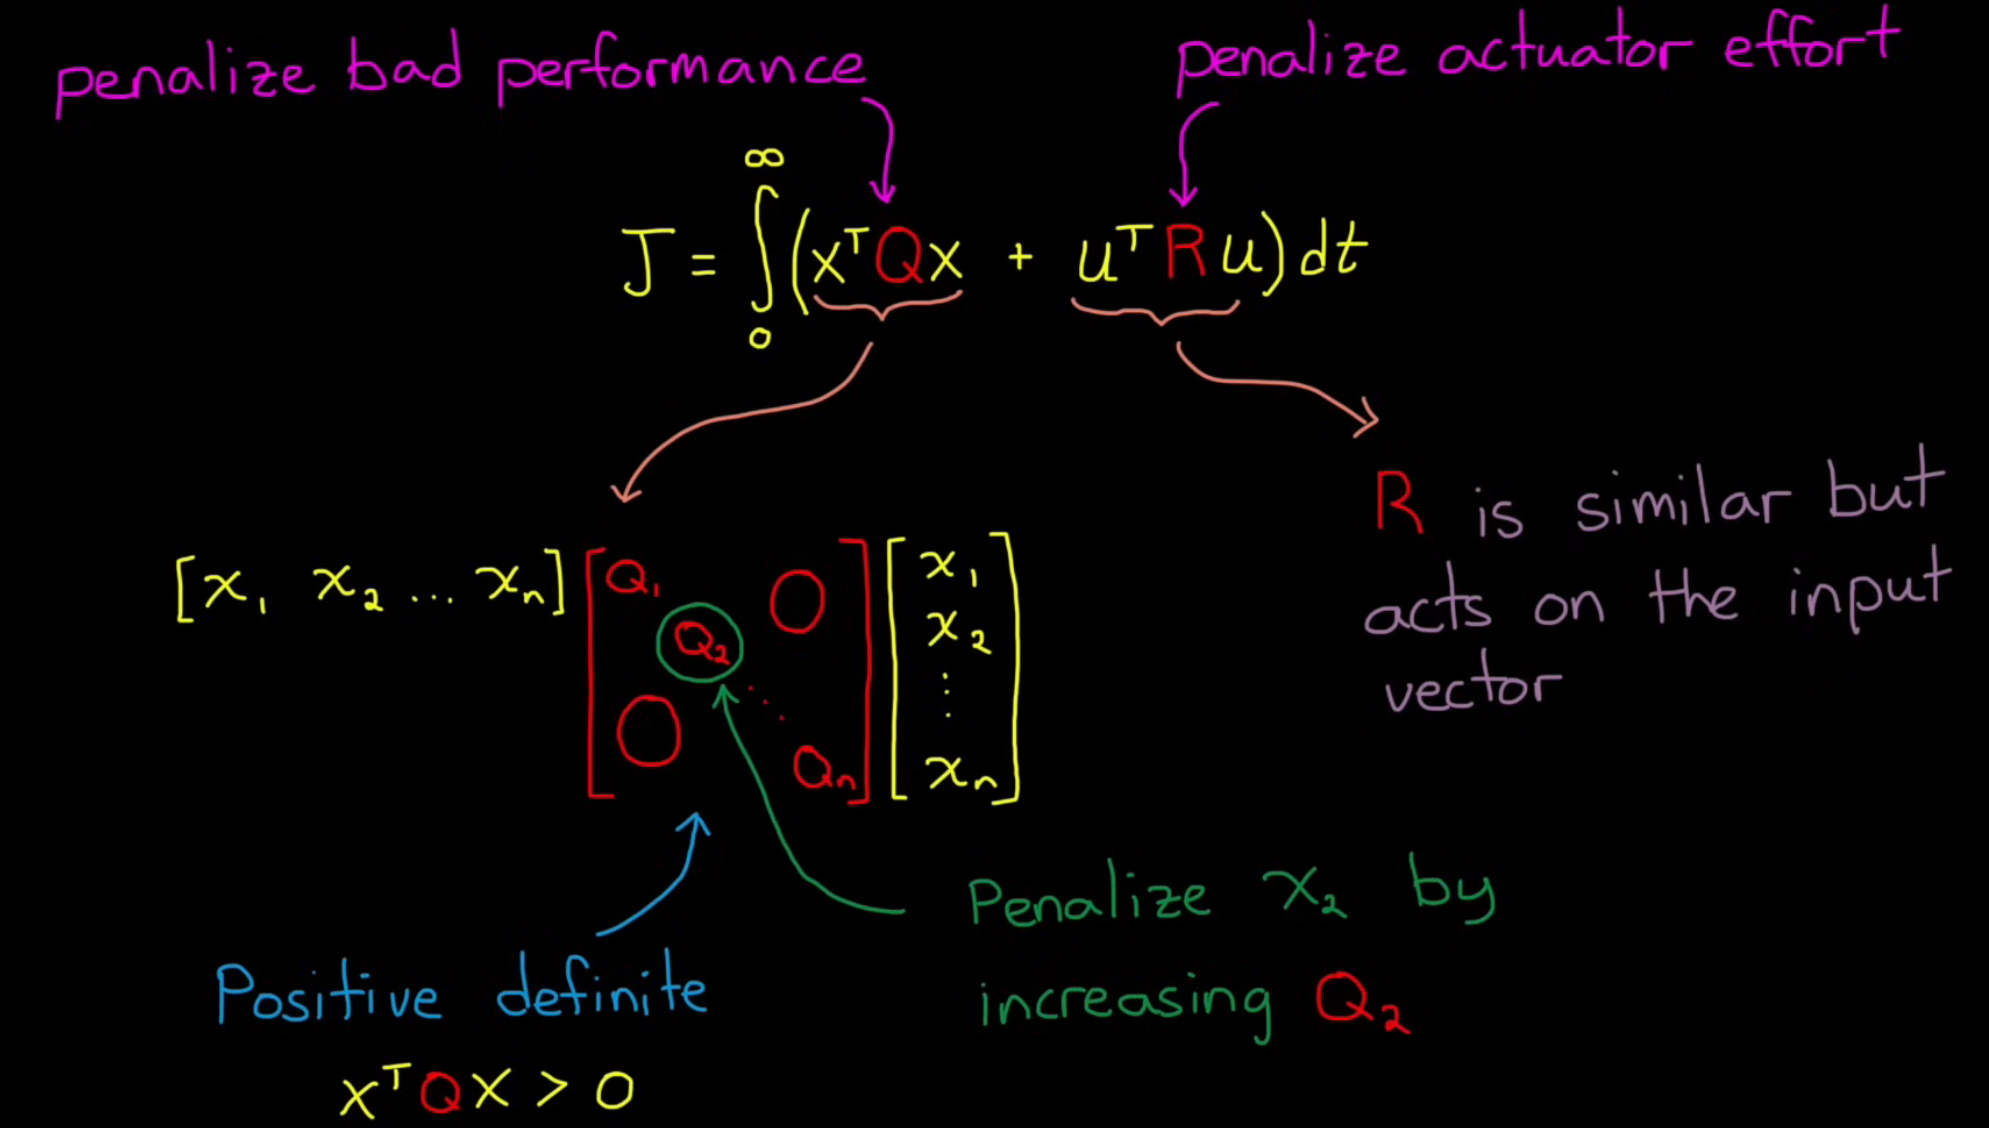 penalize bad performance
penalize actuator effort
J = ∫₀^∞ (xᵀQx + uᵀRu) dt
[x₁ x₂ ... xₙ] [Q₁ Q₂ ⋱ Qₙ 0 0] [x₁ x₂ ⋮ xₙ]
R is similar but
acts on the input
vector
Penalize x₂ by
increasing Q₂
Positive definite
xᵀQx > 0